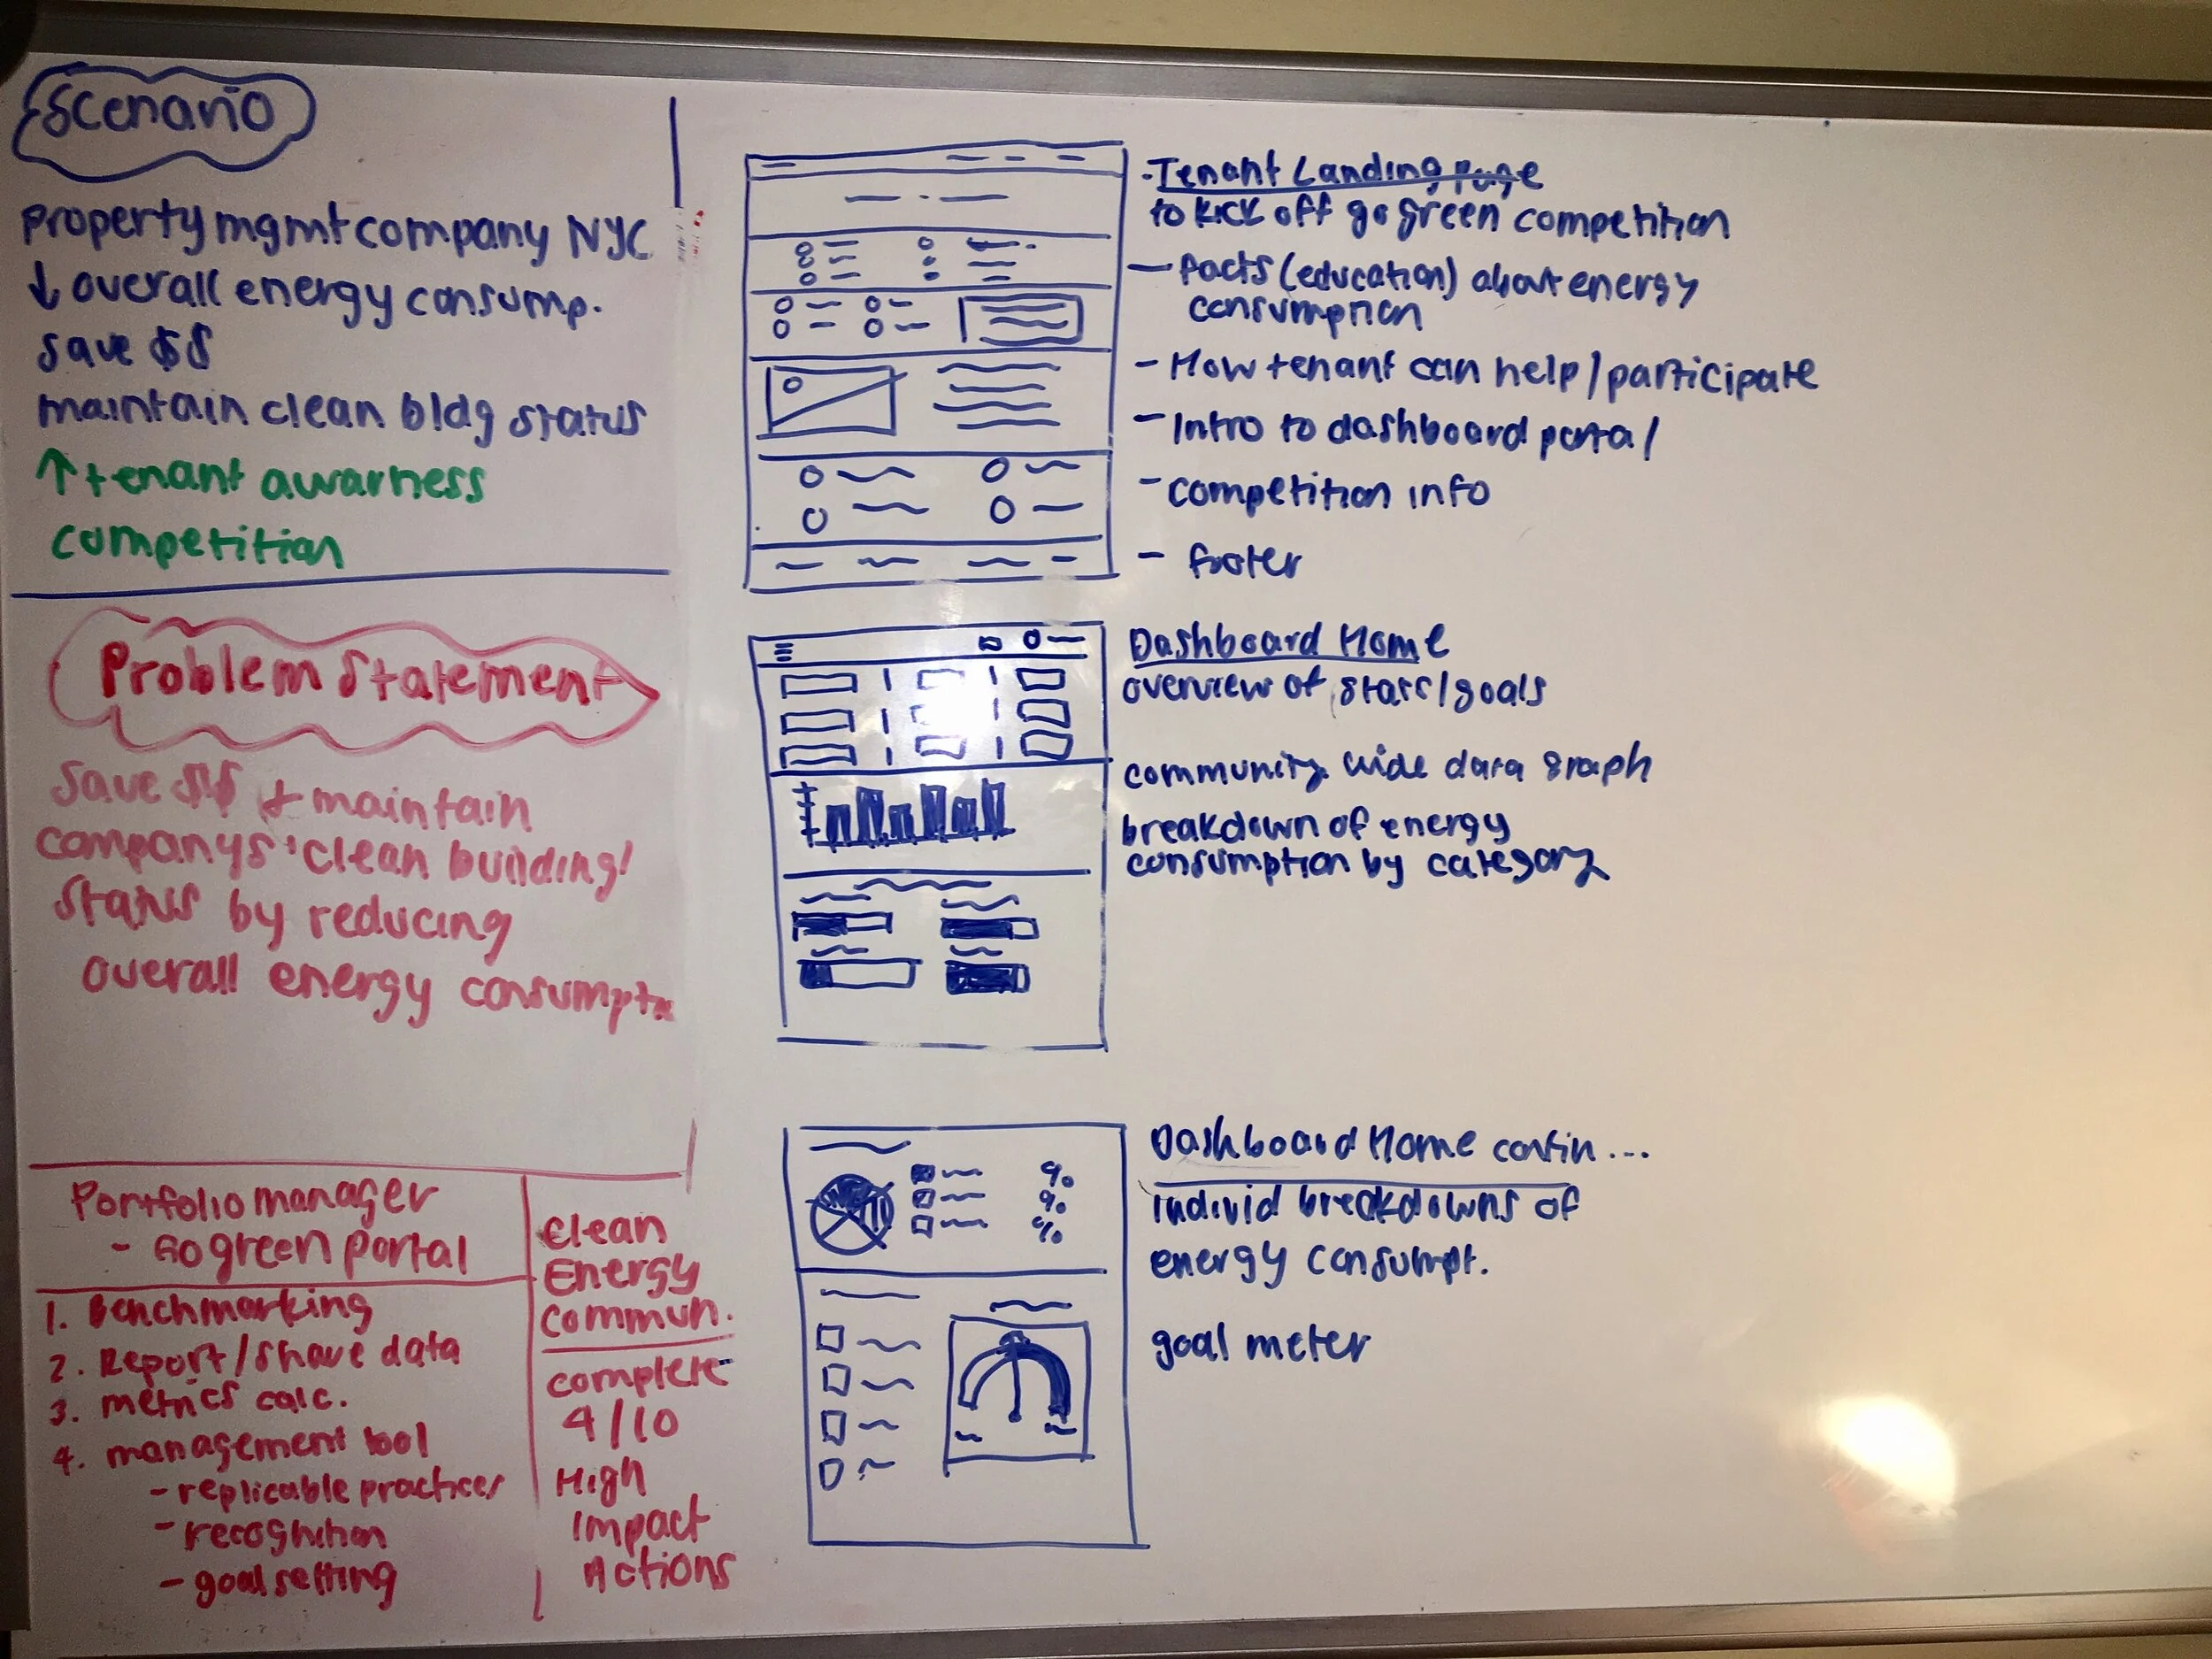 Scenario
property mgmt company NYC
↓ overall energy consump.
save $$
maintain clean bldg status
↑ tenant awarness
competition
Problem Statement
Save $$ + maintain
companys 'clean building'
status by reducing
overall energy consumptn
Portfolio manager
- Go green portal
1. Benchmarking
2. Report/share data
3. metrics calc.
4. management tool
- replicable practices
- recognition
- goal setting
Clean
Energy
Commun.
complete
4/10
High
Impact
Actions
- Tenant Landing Page
to kick off go green competition
- facts (education) about energy
consumption
- How tenant can help/participate
- Intro to dashboard portal
- competition info
- footer
Dashboard Home
overview of stats/goals
community wide data graph
breakdown of energy
consumption by category
% 
%
%
Dashboard Home contin...
individ breakdowns of
energy consumpt.
goal meter